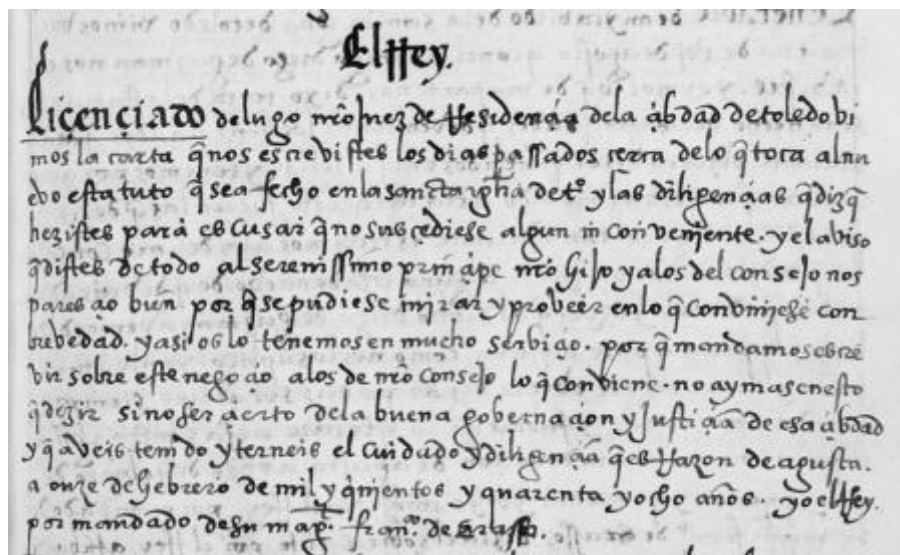 El Rey.
Licenciado de lugo nro juez de Residençia dela çibdad de toledo vi
mos la carta q̃ nos escrevistes los dias passados cerca delo q̃ toca al nu
evo estatuto q̃ sea fecho en la sancta ygłia de tº. y las diligençias q̃ dizq̃
hezistes para escusar q̃ no susçediese algun inconveniente. y el aviso
q̃ distes de todo al serenissimo prinçipe nro hijo y alos del consejo nos
paresçio bien por q̃ se pudiese mirar y proveer enlo q̃ conviniese con
brevedad. y asi os lo tenemos en mucho serbiçio. por q̃ mandamos escre
vir sobre este negoçio alos de nro consejo lo q̃ conviene. no ay mas enesto
q̃ dezir sino ser çierto dela buena gobernaçion y justiçia de esa çibdad
y q̃ aveis tenido y terneis el cuidado y diligençia q̃ es Razon de agusta.
a onze de hebrero de mil y qinientos y quarenta y ocho años. yo el Rey.
por mandado de su magt. franco. de eraso.